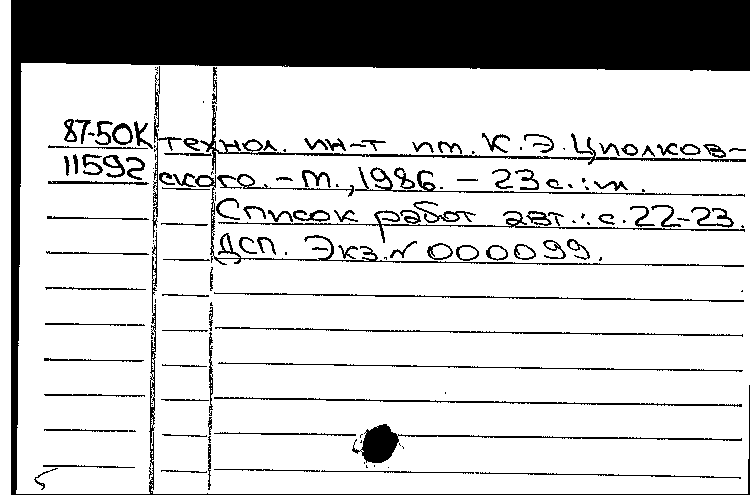 87-50К технол. ин-т им. К.Э.Циолков-
11592 ского. - М., 1986. - 23 с.: ил.
Список работ авт.: с. 22-23.
ДСП. Экз. № 000099.